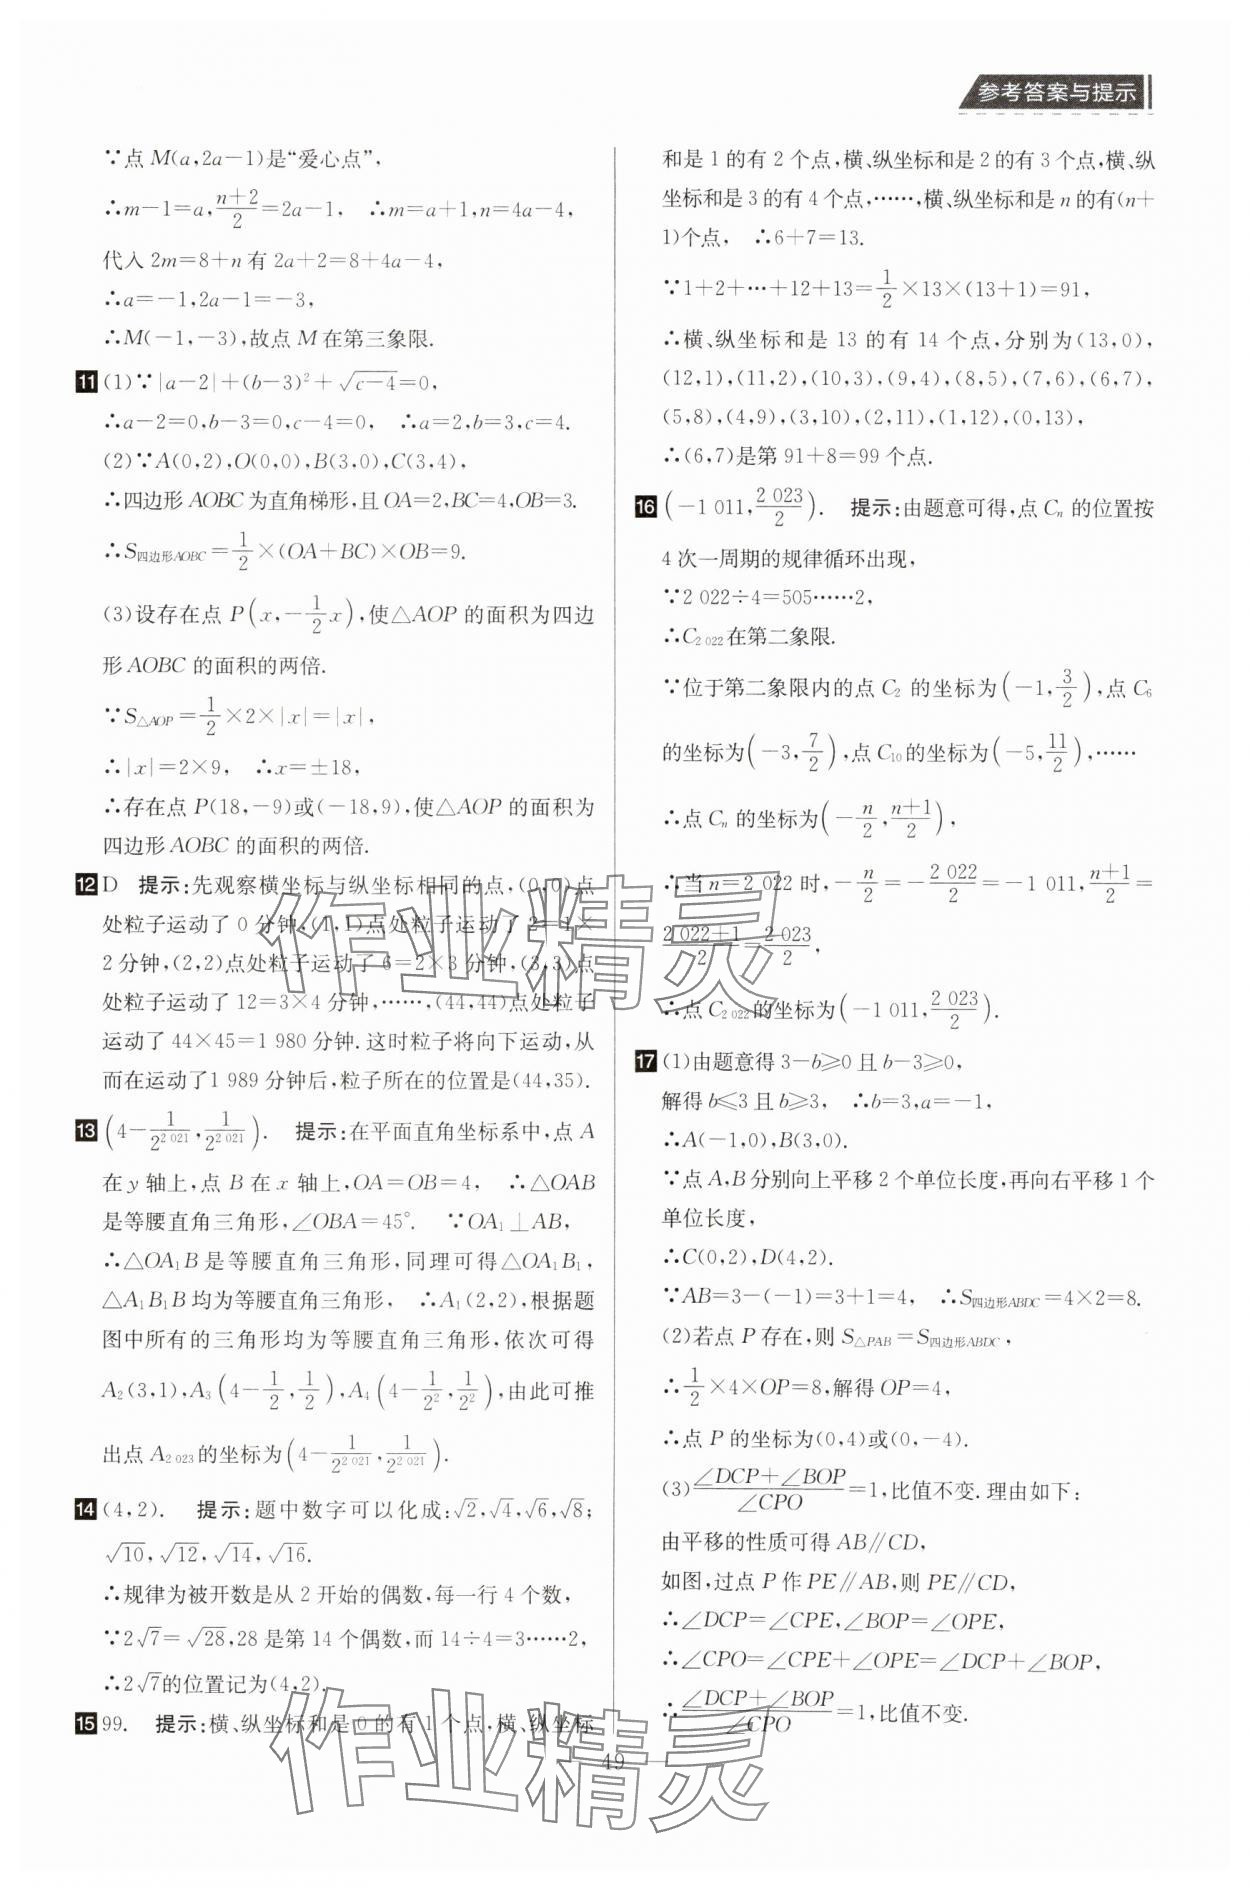 参考答案与提示
∵点 M(a,2a－1)是“爱心点”,
∴m－1=a,(n+2)/2=2a－1, ∴m=a+1,n=4a－4,
代入 2m=8+n 有 2a+2=8+4a－4,
∴a=－1,2a－1=－3,
∴M(－1,－3),故点 M 在第三象限.
11 (1)∵|a－2|+(b－3)²+√(c－4)=0,
∴a－2=0,b－3=0,c－4=0, ∴a=2,b=3,c=4.
(2)∵A(0,2),O(0,0),B(3,0),C(3,4),
∴四边形 AOBC 为直角梯形,且 OA=2,BC=4,OB=3.
∴S四边形AOBC=1/2×(OA+BC)×OB=9.
(3)设存在点 P(x,－1/2x),使△AOP 的面积为四边
形 AOBC 的面积的两倍.
∵S△AOP=1/2×2×|x|=|x|,
∴|x|=2×9, ∴x=±18,
∴存在点 P(18,－9)或(－18,9),使△AOP 的面积为
四边形 AOBC 的面积的两倍.
12 D 提示:先观察横坐标与纵坐标相同的点,(0,0)点
处粒子运动了 0 分钟,(1,1)点处粒子运动了 2=1×
2 分钟,(2,2)点处粒子运动了 6=2×3 分钟,(3,3)点
处粒子运动了 12=3×4 分钟,……,(44,44)点处粒子
运动了 44×45=1 980 分钟.这时粒子将向下运动,从
而在运动了1 989 分钟后,粒子所在的位置是(44,35).
13 (4－1/2^(2 021),1/2^(2 021)). 提示:在平面直角坐标系中,点 A
在 y 轴上,点 B 在 x 轴上,OA=OB=4, ∴△OAB
是等腰直角三角形,∠OBA=45°. ∵OA₁⊥AB,
∴△OA₁B 是等腰直角三角形,同理可得△OA₁B₁,
△A₁B₁B 均为等腰直角三角形, ∴A₁(2,2),根据题
图中所有的三角形均为等腰直角三角形,依次可得
A₂(3,1),A₃(4－1/2,1/2),A₄(4－1/2²,1/2²),由此可推
出点 A₂ ₀₂₃的坐标为(4－1/2^(2 021),1/2^(2 021)).
14 (4,2). 提示:题中数字可以化成:√2,√4,√6,√8;
√10,√12,√14,√16.
∴规律为被开数是从 2 开始的偶数,每一行 4 个数,
∵2√7=√28,28 是第 14 个偶数,而 14÷4=3……2,
∴2√7的位置记为(4,2).
15 99. 提示:横、纵坐标和是 0 的有 1 个点,横、纵坐标
和是 1 的有 2 个点,横、纵坐标和是 2 的有 3 个点,横、纵
坐标和是 3 的有 4 个点,……,横、纵坐标和是 n 的有(n+
1)个点, ∴6+7=13.
∵1+2+…+12+13=1/2×13×(13+1)=91,
∴横、纵坐标和是 13 的有 14 个点,分别为(13,0),
(12,1),(11,2),(10,3),(9,4),(8,5),(7,6),(6,7),
(5,8),(4,9),(3,10),(2,11),(1,12),(0,13),
∴(6,7)是第 91+8=99 个点.
16 (－1 011,2 023/2). 提示:由题意可得,点 Cₙ 的位置按
4 次一周期的规律循环出现,
∵2 022÷4=505……2,
∴C₂ ₀₂₂在第二象限.
∵位于第二象限内的点 C₂ 的坐标为(－1,3/2),点 C₆
的坐标为(－3,7/2),点 C₁₀的坐标为(－5,11/2),……
∴点 Cₙ 的坐标为(－n/2,(n+1)/2),
∴当 n=2 022 时,－n/2=－2 022/2=－1 011,(n+1)/2=
(2 022+1)/2=2 023/2,
∴点 C₂ ₀₂₂的坐标为(－1 011,2 023/2).
17 (1)由题意得 3－b≥0 且 b－3≥0,
解得 b≤3 且 b≥3, ∴b=3,a=－1,
∴A(－1,0),B(3,0).
∵点 A,B 分别向上平移 2 个单位长度,再向右平移 1 个
单位长度,
∴C(0,2),D(4,2).
∵AB=3－(－1)=3+1=4, ∴S四边形ABDC=4×2=8.
(2)若点 P 存在,则 S△PAB=S四边形ABDC,
∴1/2×4×OP=8,解得 OP=4,
∴点 P 的坐标为(0,4)或(0,－4).
(3)(∠DCP+∠BOP)/∠CPO=1,比值不变.理由如下:
由平移的性质可得 AB∥CD,
如图,过点 P 作 PE∥AB,则 PE∥CD,
∴∠DCP=∠CPE,∠BOP=∠OPE,
∴∠CPO=∠CPE+∠OPE=∠DCP+∠BOP,
∴(∠DCP+∠BOP)/∠CPO=1,比值不变.
49
作业精灵
作业精灵